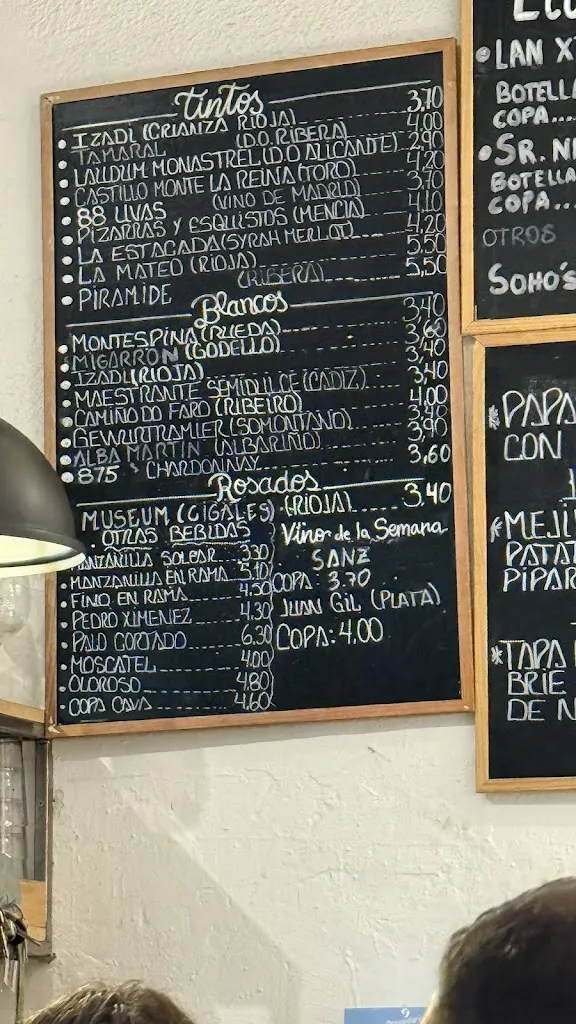 Tintos
• IZADI (CRIANZA RIOJA) 3,70
• TAMARAL (D.O. RIBERA) 4,00
• LAUDUM MONASTREL (D.O ALICANTE) 2,90
• CASTILLO MONTE LA REINA (TORO) 4,20
• 88 UVAS (VINO DE MADRID) 3,70
• PIZARRAS Y ESQUISTOS (MENCIA) 4,10
• LA ESTACADA (SYRAH MERLOT) 4,20
• LA MATEO (RIOJA) 5,50
• PIRAMIDE (RIBERA) 5,50
Blancos
• MONTESPINA (RUEDA) 3,40
• MIGARRON (GODELLO) 3,60
• IZADI (RIOJA) 3,40
• MAESTRANTE SEMIDULCE (CADIZ) 3,40
• CAMIÑO DO FARO (RIBEIRO) 4,00
• GEWURTRAMIER (SOMONTANO) 3,40
• ALBA MARTIN (ALBARIÑO) 3,90
• 875 CHARDONNAY 3,60
Rosados
MUSEUM (CIGALES) (RIOJA) 3,40
OTRAS BEBIDAS
MANZANILLA SOLEAR 3,30
MANZANILLA EN RAMA 5,10
• FINO EN RAMA 4,50
• PEDRO XIMENEZ 4,30
• PALO CORTADO 6,30
• MOSCATEL 4,00
• OLOROSO 4,80
• COPA CAVA 4,60
Vino de la Semana
SANZ
COPA: 3,70
JUAN GIL (PLATA)
COPA: 4,00
• LAN
BOTELLA
COPA....
• SR.
BOTELLA
COPA...
OTROS
SOHO'S
* PAPA
CON
* MEJI
PATAT
PIPAR
* TAPA
BRIE
DE